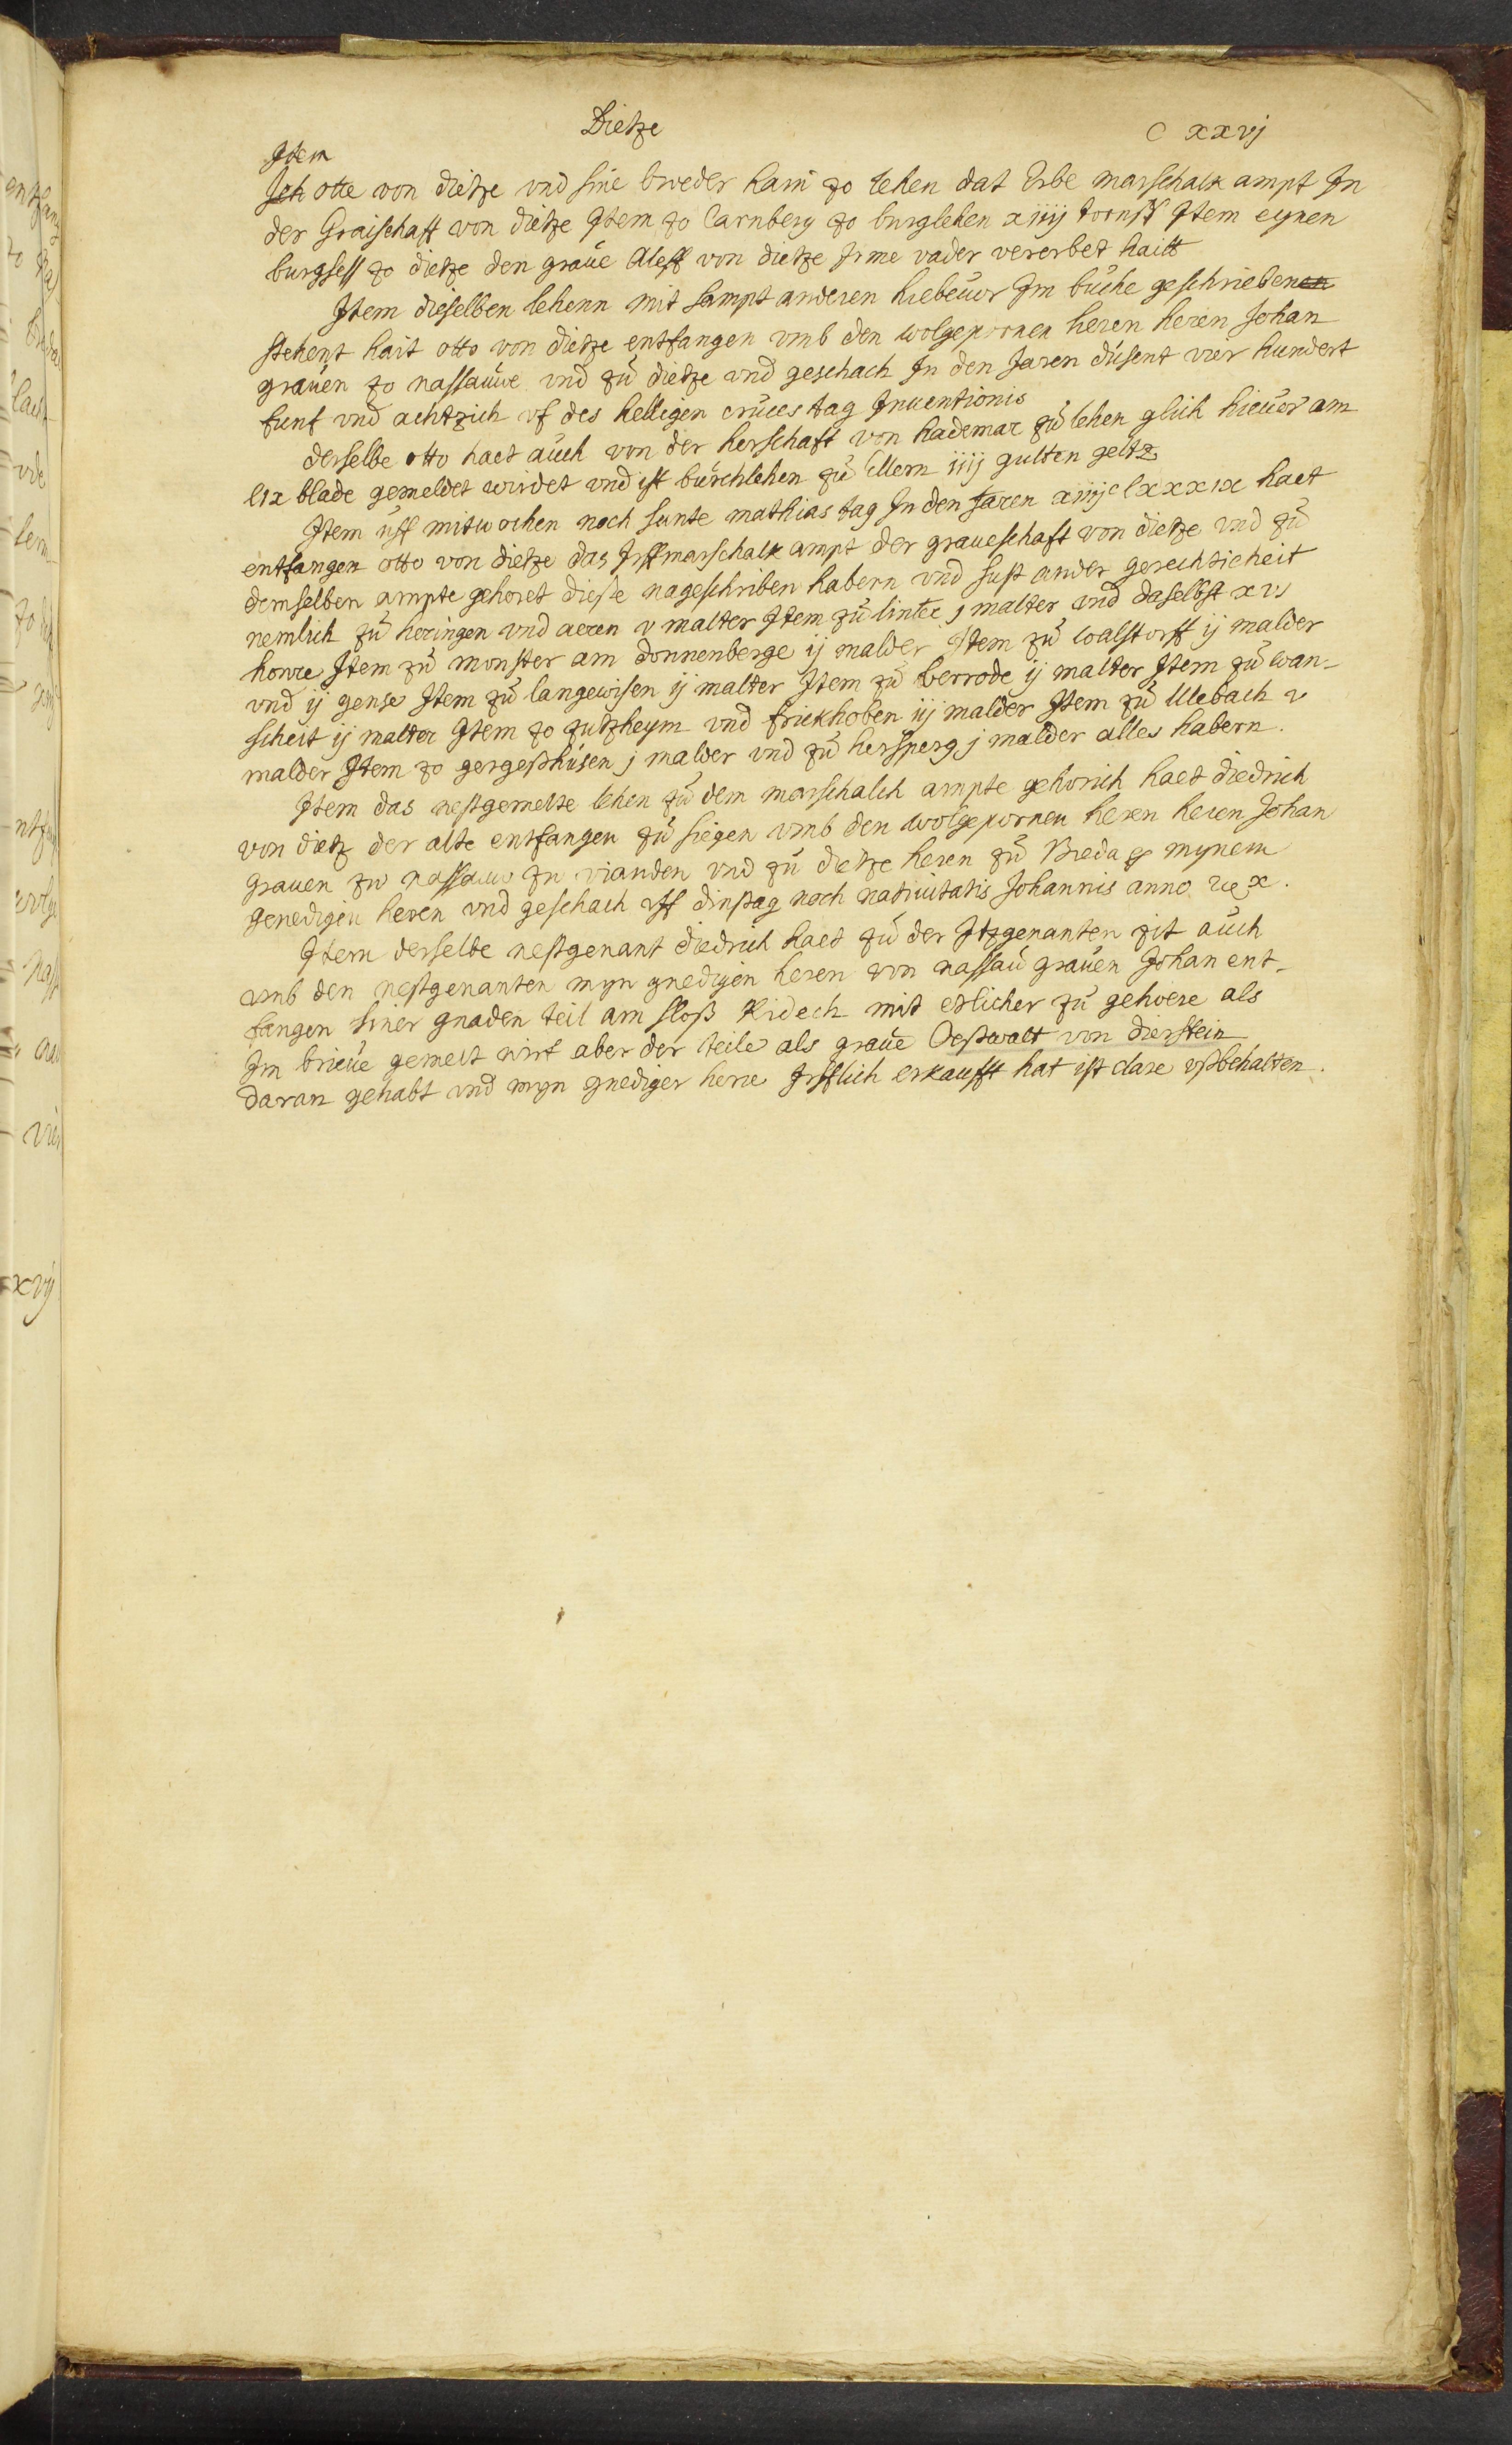 Dietze
C xxvj
Item
Ich otte von dietze vnd sine breder hain zo lehen dat Erbe marschalk ampt In
der Graischaft von dietze Item zo Carnberg zo burglehen xiiij tornß Item eynen
burgseß zo dietze den graue Aleff von dietze Irme vader vererbet haitt
Item dieselben lehenn mit sampt anderen hiebeuor Im buche geschriebenen
stehent hait otto von dietze entfangen vmb den wolgepornen heren heren Johan
grauen zo nassauwe vnd zů dietze vnd geschach In den Jaren dusent vier hundert
funf vnd achtzich vf des helligen cruces tag Inuentionis
derselbe otto haet auch von der herschaft von hademar zů lehen glich hieuor am
lix blade gemeldet wirdet vnd ist burchlehen zů Ellern iiij gulten geltz
Item uff mitwochen noch sunte mathias tag In den Jaren xiiijc lxxxix haet
entfangen otto von dietze das Irffmarschalk ampt der graueschaft von dietze vnd zů
demselben ampte gehoret dieße nageschriben habern vnd sust ander gerechticheit
nemlich zů heringen vnd aeren v malter Item zů linter j malter vnd daselbst xvj
honre Item zů monster am donnenberge ij malder Item zů walstorff ij malder
vnd ij gense Item zů langewisen ij malter Item zů berrode ij malter Item zů wan-
scheit ij malter Item zo zutzheym vnd frickhoben iij malder Item zů Ulebach v
malder Item zo gergeßhusen j malder vnd zů hersperg j malder alles habern.
Item das nestgemelte lehen zů dem marschalch ampte gehorich haet diedrich
von dietz der alte entfangen zů siegen vmb den wolgepornen heren heren Johan
grauen zu nassauw zu vianden vnd zů dietze heren zů Breda & mynem
genedigen heren vnd geschach vff dinstag noch natiuitatis Johannis anno xcx.
Item derselbe nestgenant diedrich haet zů der Itzgenanten zit auch
vmb den nestgenanten myn gnedigen heren von nassau grauen Johan ent-
fangen siner gnaden teil am sloß Kidech mit etzlicher zů gehoere als
Im brieue gemelt wirt aber der teile als graue Oeßwalt von dierstein
daran gehabt vnd myn gnediger herre Irfflich erkaufft hat ist clare vßbehalten.